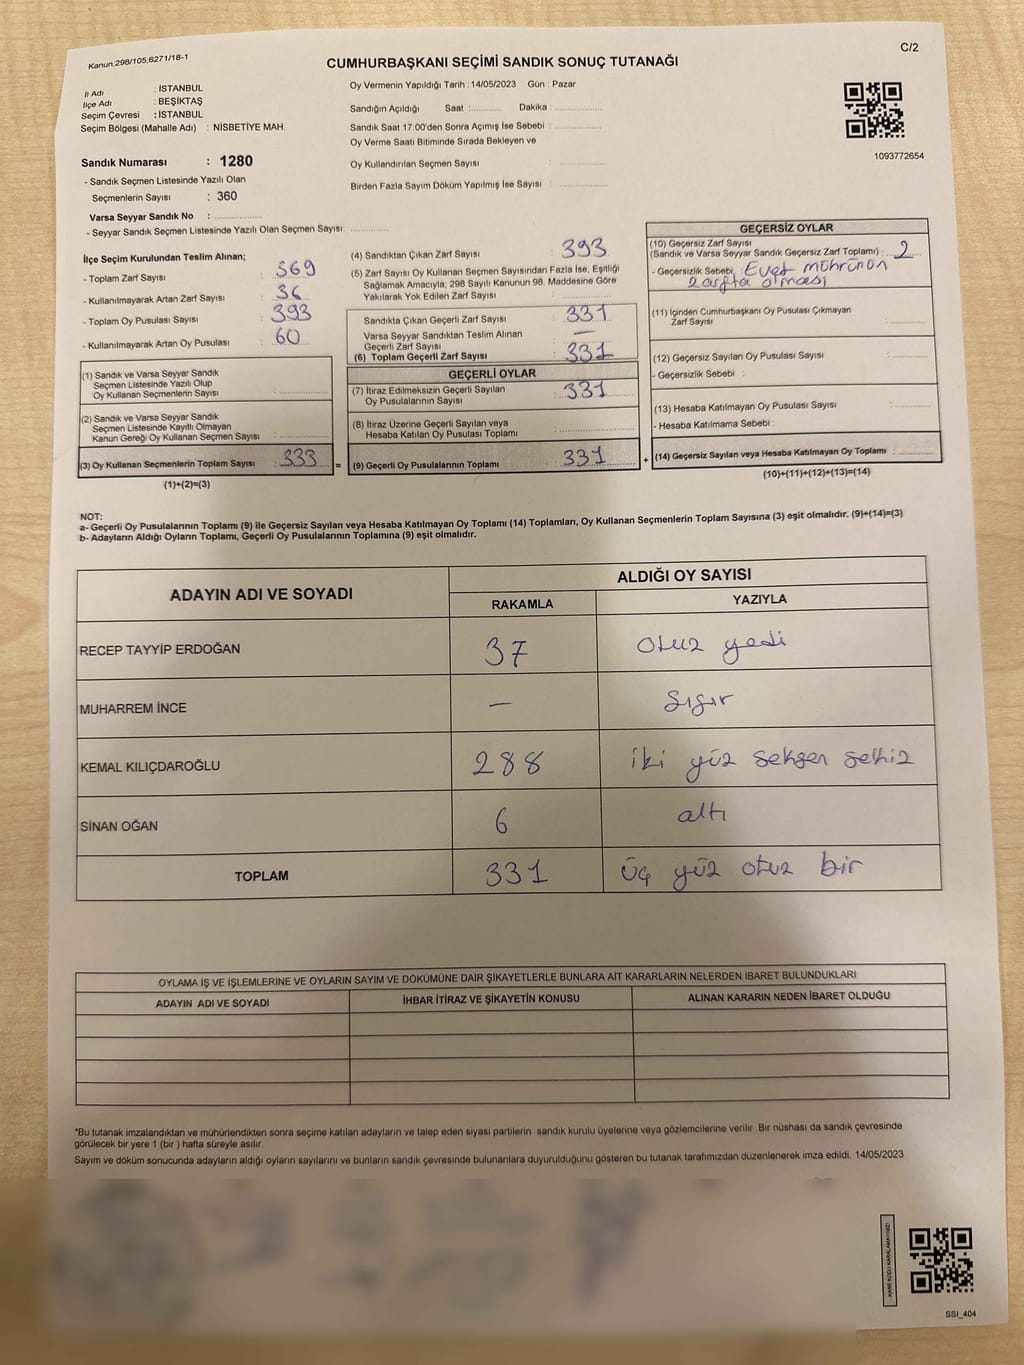 Kanun,298/105,6271/18-1
C/2
CUMHURBAŞKANI SEÇİMİ SANDIK SONUÇ TUTANAĞI
İl Adı : İSTANBUL
İlçe Adı : BEŞİKTAŞ
Seçim Çevresi : İSTANBUL
Seçim Bölgesi (Mahalle Adı) : NİSBETİYE MAH.
Sandık Numarası : 1280
- Sandık Seçmen Listesinde Yazılı Olan
Seçmenlerin Sayısı : 360
Varsa Seyyar Sandık No :
- Seyyar Sandık Seçmen Listesinde Yazılı Olan Seçmen Sayısı:
Oy Vermenin Yapıldığı Tarih : 14/05/2023 Gün : Pazar
Sandığın Açıldığı Saat : Dakika :
Sandık Saat 17:00'den Sonra Açımış İse Sebebi :
Oy Verme Saati Bitiminde Sırada Bekleyen ve
Oy Kullandırılan Seçmen Sayısı :
Birden Fazla Sayım Döküm Yapılmış İse Sayısı :
1093772654
İlçe Seçim Kurulundan Teslim Alınan;
- Toplam Zarf Sayısı : 369
- Kullanılmayarak Artan Zarf Sayısı : 36
- Toplam Oy Pusulası Sayısı : 393
- Kullanılmayarak Artan Oy Pusulası : 60
(1) Sandık ve Varsa Seyyar Sandık
Seçmen Listesinde Yazılı Olup
Oy Kullanan Seçmenlerin Sayısı :
(2) Sandık ve Varsa Seyyar Sandık
Seçmen Listesinde Kayıtlı Olmayan
Kanun Gereği Oy Kullanan Seçmen Sayısı :
(3) Oy Kullanan Seçmenlerin Toplam Sayısı : 333
(1)+(2)=(3)
(4) Sandıktan Çıkan Zarf Sayısı : 393
(5) Zarf Sayısı Oy Kullanan Seçmen Sayısından Fazla İse, Eşitliği
Sağlamak Amacıyla, 298 Sayılı Kanunun 98. Maddesine Göre
Yakılarak Yok Edilen Zarf Sayısı :
Sandıkta Çıkan Geçerli Zarf Sayısı : 331
Varsa Seyyar Sandıktan Teslim Alınan
Geçerli Zarf Sayısı : —
(6) Toplam Geçerli Zarf Sayısı : 331
GEÇERLİ OYLAR
(7) İtiraz Edilmeksizin Geçerli Sayılan
Oy Pusulalarının Sayısı : 331
(8) İtiraz Üzerine Geçerli Sayılan veya
Hesaba Katılan Oy Pusulası Toplamı :
= (9) Geçerli Oy Pusulalarının Toplamı : 331 +
GEÇERSİZ OYLAR
(10) Geçersiz Zarf Sayısı
(Sandık ve Varsa Seyyar Sandık Geçersiz Zarf Toplamı) : 2
- Geçersizlik Sebebi : Evet mührünün
zarfta olması
(11) İçinden Cumhurbaşkanı Oy Pusulası Çıkmayan
Zarf Sayısı :
(12) Geçersiz Sayılan Oy Pusulası Sayısı :
- Geçersizlik Sebebi :
(13) Hesaba Katılmayan Oy Pusulası Sayısı :
- Hesaba Katılmama Sebebi :
(14) Geçersiz Sayılan veya Hesaba Katılmayan Oy Toplamı :
(10)+(11)+(12)+(13)=(14)
NOT:
a- Geçerli Oy Pusulalarının Toplamı (9) ile Geçersiz Sayılan veya Hesaba Katılmayan Oy Toplamı (14) Toplamları, Oy Kullanan Seçmenlerin Toplam Sayısına (3) eşit olmalıdır. (9)+(14)=(3)
b- Adayların Aldığı Oyların Toplamı, Geçerli Oy Pusulalarının Toplamına (9) eşit olmalıdır.
ADAYIN ADI VE SOYADI ALDIĞI OY SAYISI
RAKAMLA YAZIYLA
RECEP TAYYİP ERDOĞAN 37 otuz yedi
MUHARREM İNCE — sıfır
KEMAL KILIÇDAROĞLU 288 iki yüz seksen sekiz
SİNAN OĞAN 6 altı
TOPLAM 331 üç yüz otuz bir
OYLAMA İŞ VE İŞLEMLERİNE VE OYLARIN SAYIM VE DÖKÜMÜNE DAİR ŞİKAYETLERLE BUNLARA AİT KARARLARIN NELERDEN İBARET BULUNDUKLARI
ADAYIN ADI VE SOYADI İHBAR İTİRAZ VE ŞİKAYETİN KONUSU ALINAN KARARIN NEDEN İBARET OLDUĞU
*Bu tutanak imzalandıktan ve mühürlendikten sonra seçime katılan adayların ve talep eden siyasi partilerin sandık kurulu üyelerine veya gözlemcilerine verilir. Bir nüshası da sandık çevresinde
görülecek bir yere 1 (bir ) hafta süreyle asılır.
Sayım ve döküm sonucunda adayların aldığı oyların sayılarını ve bunların sandık çevresinde bulunanlara duyurulduğunu gösteren bu tutanak tarafımızdan düzenlenerek imza edildi. 14/05/2023
KARE KODU KARALAMAYINIZ!
SSI_404